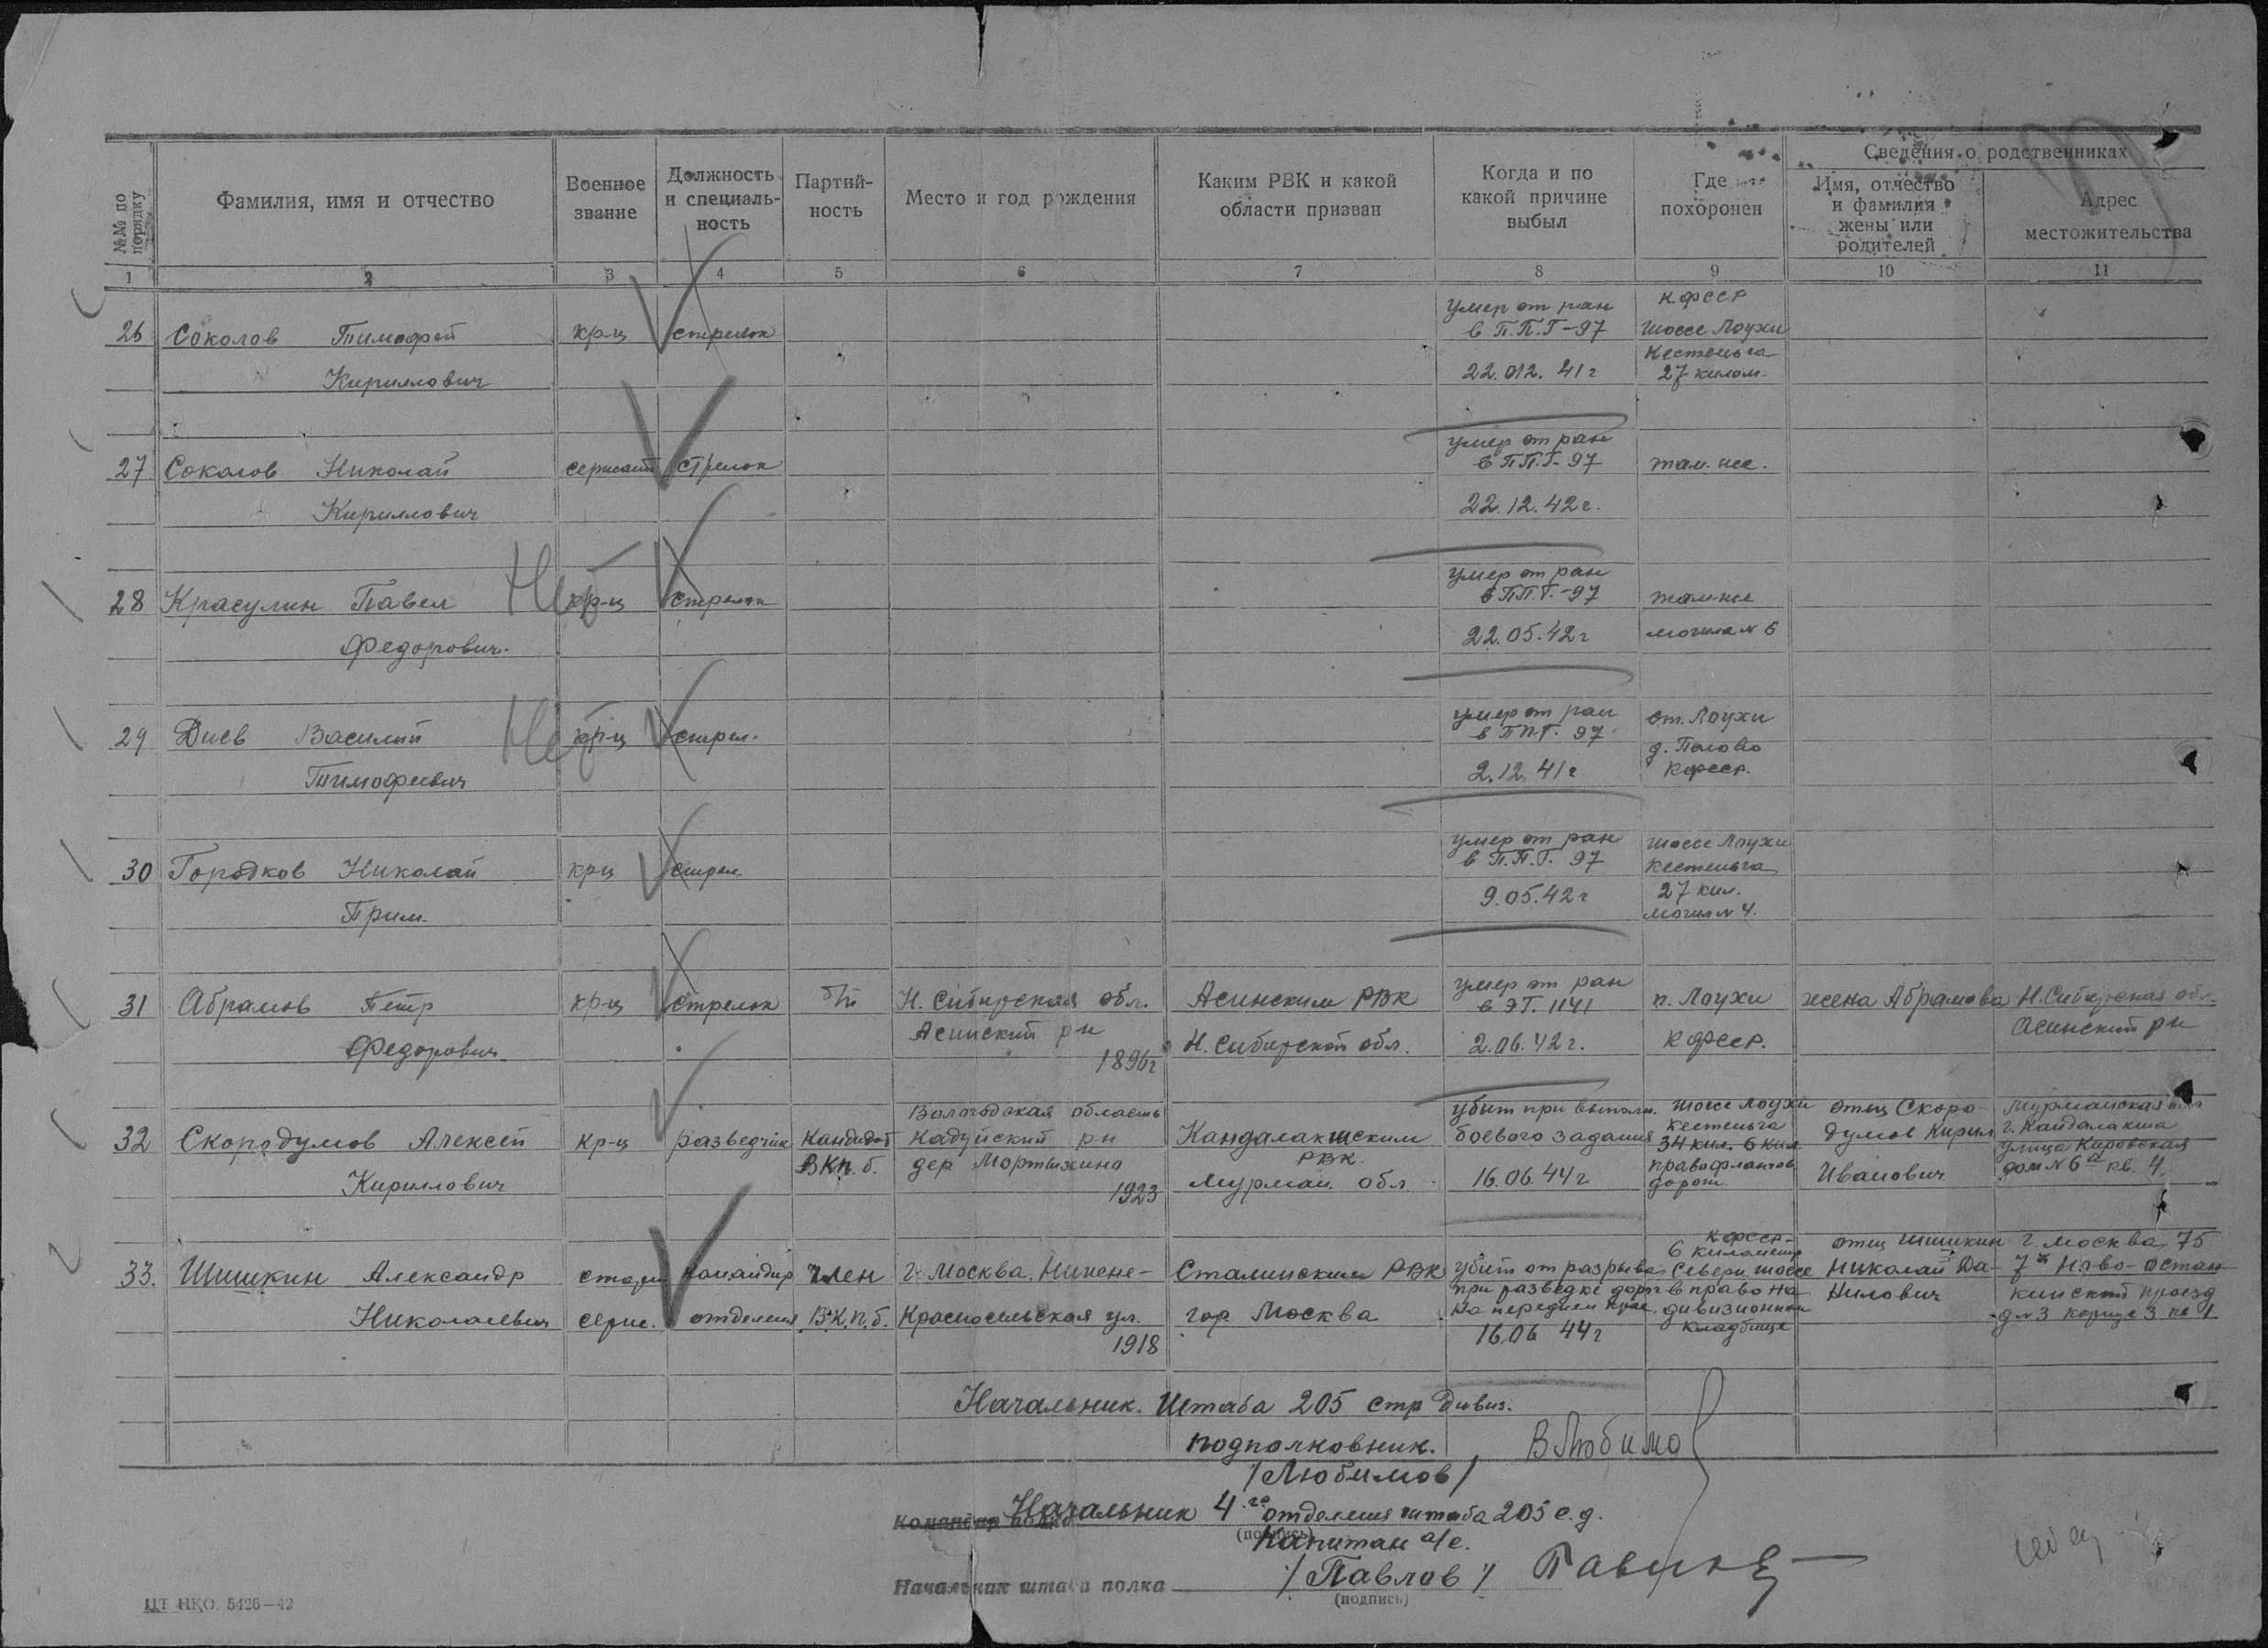 №№ по порядку
Фамилия, имя и отчество
Военное звание
Должность и специальность
Партийность
Место и год рождения
Каким РВК и какой области призван
Когда и по какой причине выбыл
Где похоронен
Сведения о родственниках
Имя, отчество и фамилия жены или родителей
Адрес местожительства
1 2 3 4 5 6 7 8 9 10 11
умер от ран К.ФССР
26 Соколов Тимофей кр-ц стрелок в П.П.Г-97 шоссе Лоухи
Кестеньга
Кириллович 22.012.41г 27 килом.
умер от ран
27 Соколов Николай сержант стрелок в П.П.Г-97 там-же.
Кириллович 22.12.42г.
умер от ран
28 Красулин Павел Нет кр-ц стрелок в П.П.Г.-97 там-же
Федорович. 22.05.42г могила N 6
умер от ран ст. Лоухи
29 Диев Василий Нет кр-ц стрел. в ППГ. 97
Тимофеевич 2.12.41г КФССР.
умер от ран шоссе Лоухи
30 Городков Николай кр-ц стрел. в П.П.Г. 97 Кестеньга
27 кил.
Прим. 9.05.42г могил N 4.
умер от ран
31 Абрамов Петр кр-ц стрелок б/п Н. Сибирская обл. Асинским РВК в ЭГ. 1141 п. Лоухи жена Абрамова Н.Сибирская обл.
Асинский рн Асинский рн
Федорович Н. Сибирской обл. 2.06.42г. К ФССР.
1896г
Вологодская область убит при выполн. шоссе Лоухи отец Скоро- Мурманская обл
32 Скородумов Алексей кр-ц разведчик Кандидат Кадуйский рн Кандалакшским боевого задания Кестеньга думов Кирил г. Кандалакша
ВКП.б. дер Мортыхино РВК 34 кил. 6 кил улица Кировская
Кириллович 1923 Мурман. обл. 16.06.44г правофланков. дорог. Иванович дом N 6а кв. 4
КФССР- отец Шишкин г. Москва 75
33. Шишкин Александр старш командир член г. Москва. Нижне- Сталинским РВК убит от разрыва 6 километр Севери. шоссе Николай Да- 7й Ново-Остан
при разведке дорог в право на нилович кинский проезд
Николаевич серж. отделения В.К.П.б. Красносельская ул. гор Москва на переднем крае. дивизионном д N 3 корпус 3 кв 1
1918 16.06 44г кладбище
Начальник. Штаба 205 стр дивиз.
подполковник. ВЛюбимов
/Любимов/
Командир полка Начальник 4го отделения штаба 205 с.д.
(подпись)
Капитан а/с.
Начальник штаба полка /Павлов/
(подпись)
ЦТ НКО. 5426—42